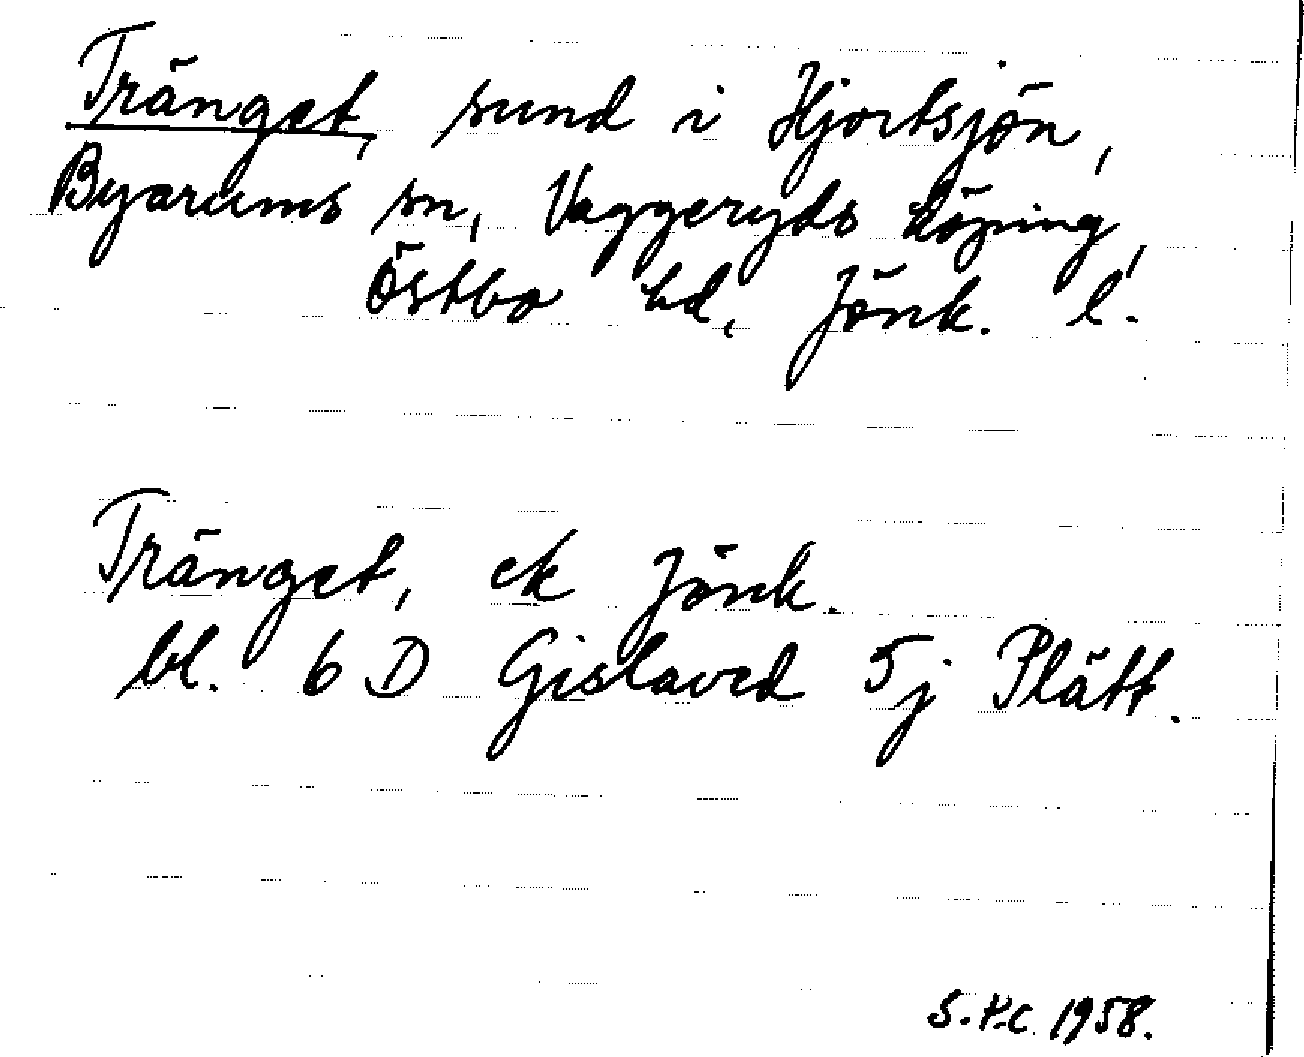 Tränget, sund i Hjortsjön,
Byarums sn, Vaggeryds köping,
Östbo hd, Jönk. l.
Tränget, ek Jönk.
bl. 6 D Gislaved 5j Plätt.
1958.